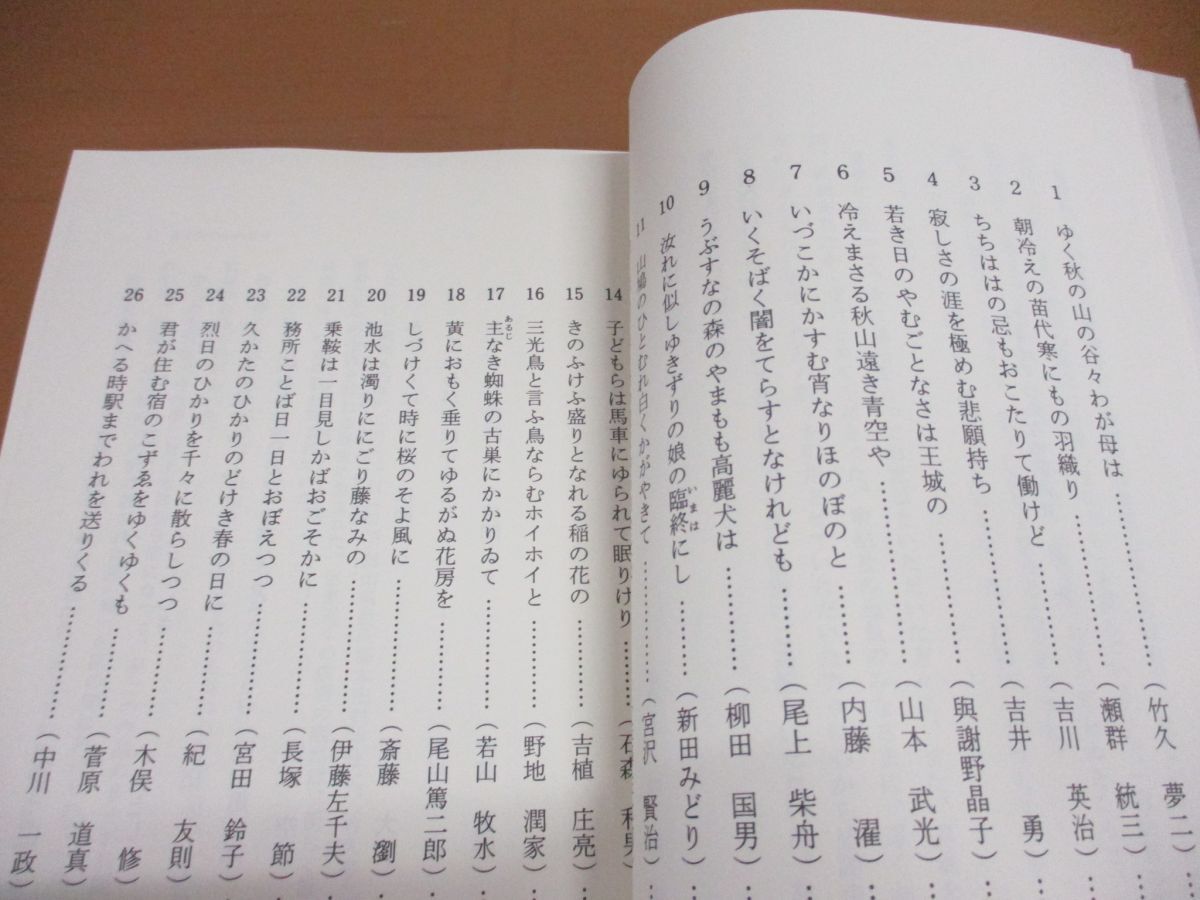 1 ゆく秋の山の谷々わが母は……………(竹久 夢二)…
2 朝冷えの苗代寒にもの羽織り……………(瀬群 統三)…
3 ちちははの忌もおこたりて働けど……………(吉川 英治)…
4 寂しさの涯を極めむ悲願持ち……………(吉井 勇)…
5 若き日のやむごとなさは王城の……………(與謝野晶子)…
6 冷えまさる秋山遠き青空や……………(山本 武光)…
7 いづこかにかすむ宵なりほのぼのと……………(内藤 濯)…
8 いくそばく闇をてらすとなけれども……………(尾上 柴舟)…
9 うぶすなの森のやまもも高麗犬は……………(柳田 国男)…
10 汝れに似しゆきずりの娘の臨終(いまは)にし……………(新田みどり)…
11 山鳩のひとむれ白くかがやきて……………(宮沢 賢治)…
14 子どもらは馬車にゆられて眠りけり……………(石森 和男)…
15 きのふけふ盛りとなれる稲の花の……………(吉植 庄亮)…
16 三光鳥と言ふ鳥ならむホイホイと……………(野地 潤家)…
17 主(あるじ)なき蜘蛛の古巣にかかりゐて……………(若山 牧水)…
18 黄におもく垂りてゆるがぬ花房を……………(尾山篤二郎)…
19 しづけくて時に桜のそよ風に……………(斎藤 瀏)…
20 池水は濁りににごり藤なみの……………(伊藤左千夫)…
21 乗鞍は一目見しかばおごそかに……………(長塚 節)…
22 務所ことば日一日とおぼえつつ……………(宮田 鈴子)…
23 久かたのひかりのどけき春の日に……………(紀 友則)
24 烈日のひかりを千々に散らしつつ……………(木俣 修)
25 君が住む宿のこずゑをゆくゆくも……………(菅原 道真)
26 かへる時駅までわれを送りくる……………(中川 一政)